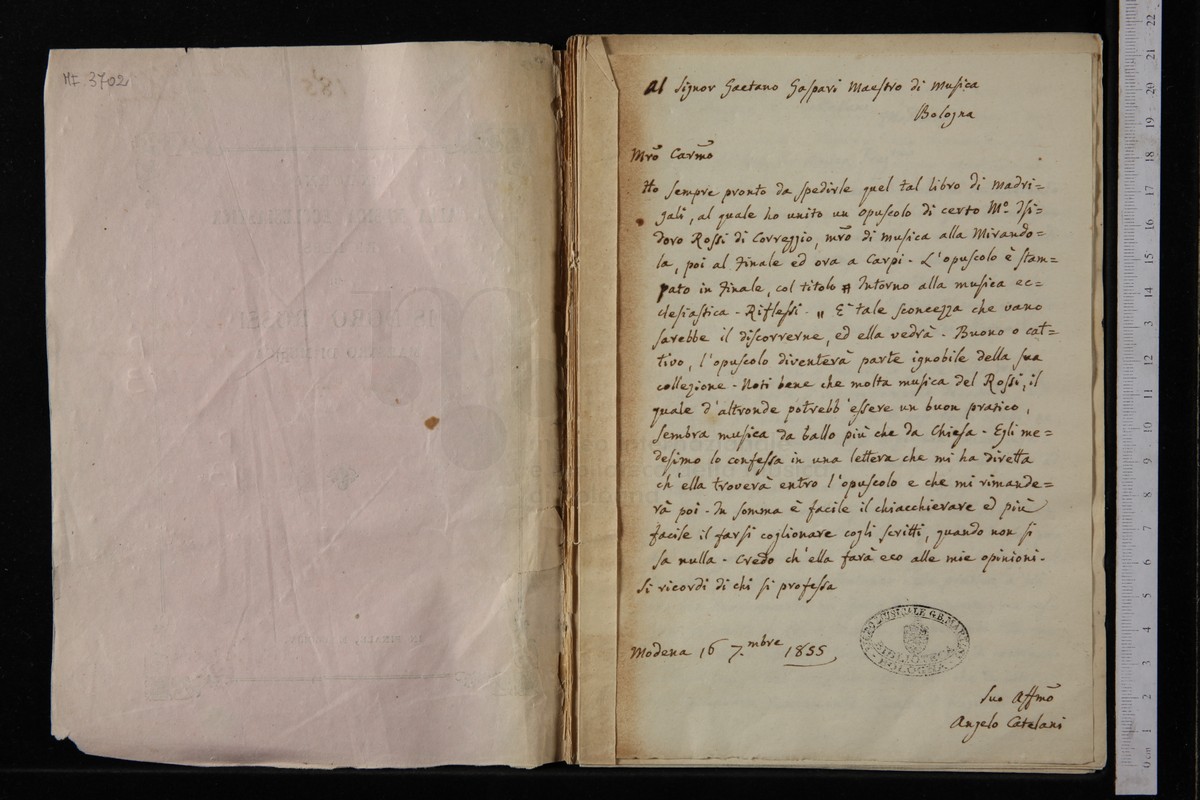 MI. 3702
Al Signor Gaetano Gaspari Maestro di Musica
Bologna
Mro Carmo
Ho sempre pronto da spedirle quel tal libro di madri=
gali, al quale ho unito un opuscolo di certo Mo. Isi=
doro Rossi di Correggio, mro di musica alla Mirando=
la, poi al Finale ed ora a Carpi. L'opuscolo è stam=
pato in Finale, col titolo # Intorno alla musica ec=
clesiastica - Riflessi. " È tale sconcezza che vano
sarebbe il discorrerne, ed ella vedrà. Buono o cat=
tivo, l'opuscolo diventerà parte ignobile della sua
collezione. Noti bene che molta musica del Rossi, il
quale d'altronde potrebb'essere un buon pratico,
sembra musica da ballo più che da Chiesa. Egli me=
desimo lo confessa in una lettera che mi ha diretta
ch'ella troverà entro l'opuscolo e che mi rimande=
rà poi. In somma è facile il chiacchierare ed più
facile il farsi coglionare cogli scritti, quando non si
sa nulla. Credo ch'ella farà eco alle mie opinioni.
Si ricordi di chi si professa
Modena 16 7.mbre 1855
LICEO MUSICALE G.B. MARTINI
BIBLIOTECA
BOLOGNA
Suo Affmo
Angelo Catelani